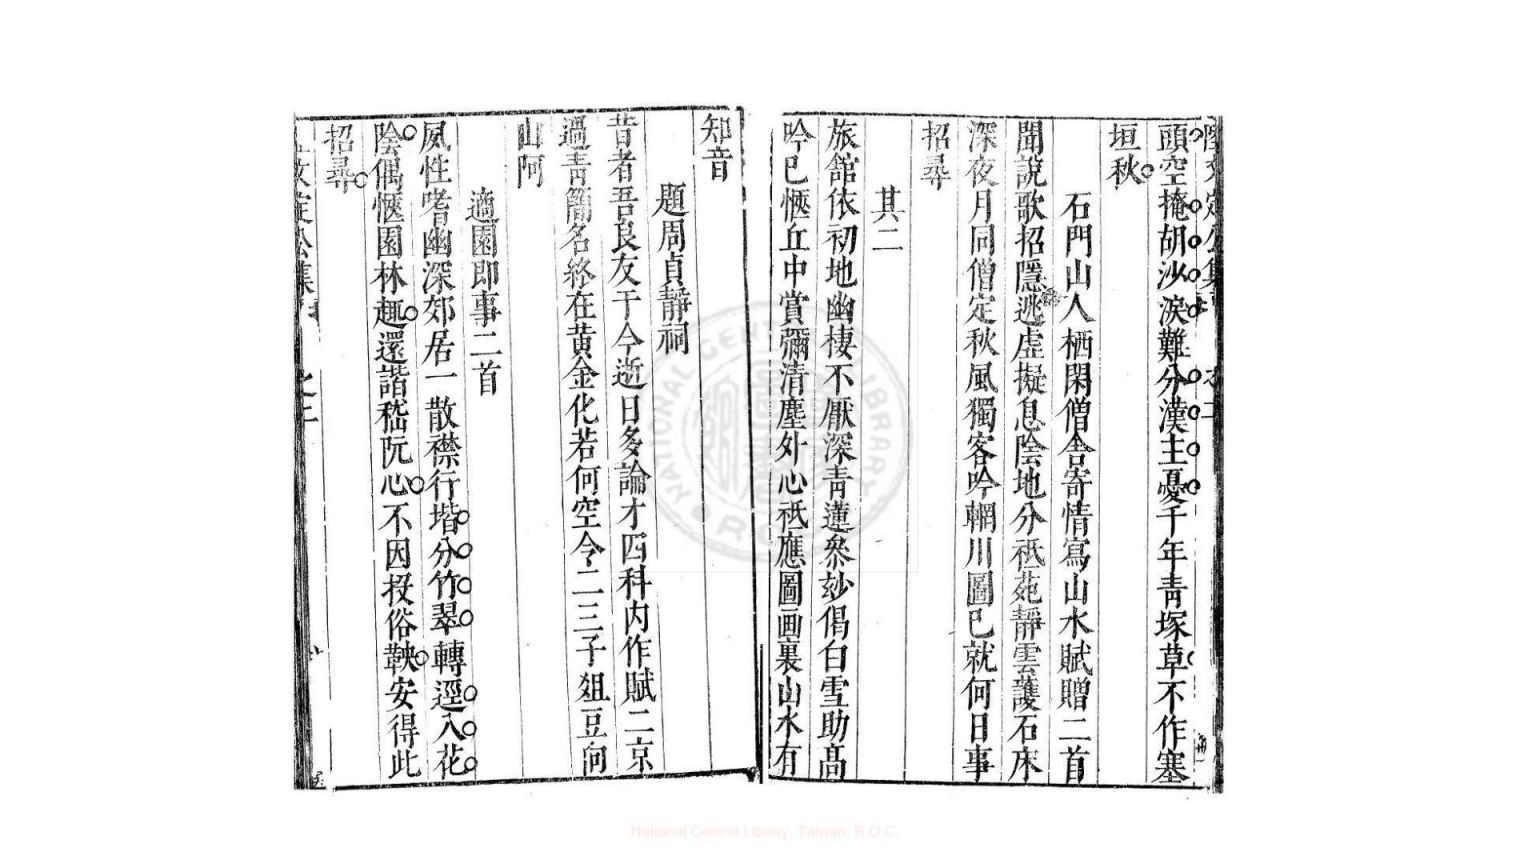 頭空掩胡沙淚難分漢主憂千年青塚草不作塞
垣秋
石門山人栖閑僧舍寄情寫山水賦贈二首
聞說歌招隱逃虛擬息陰地分祗苑靜雲護石床
深夜月同僧定秋風獨客吟輞川圖已就何日事
招尋
其二
旅舘依初地幽棲不厭深青蓮叅玅倡白雪助高
吟已愜丘中賞彌清塵外心祗應圖画裏山水有
知音
題周貞靜祠
昔者吾良友于今逝日多論才四科內作賦二京
過青簡名終在黃金化若何空令二三子爼豆向
山阿
適園即事二首
夙性嗜幽深郊居一散襟行堦分竹翠轉逕入花
陰偶愜園林趣還諧嵇阮心不因投俗鞅安得此
招尋
National Central Library, Taiwan, R.O.C.